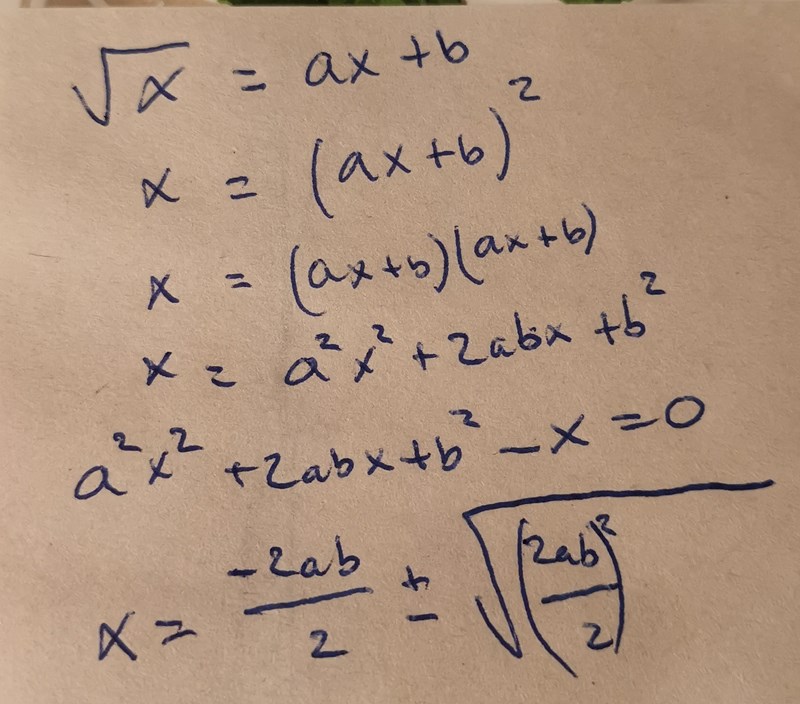 √x = ax + b
x = (ax + b)²
x = (ax + b)(ax + b)
x = a²x² + 2abx + b²
a²x² + 2abx + b² − x = 0
x = −2ab/2 ± √(2ab/2)²